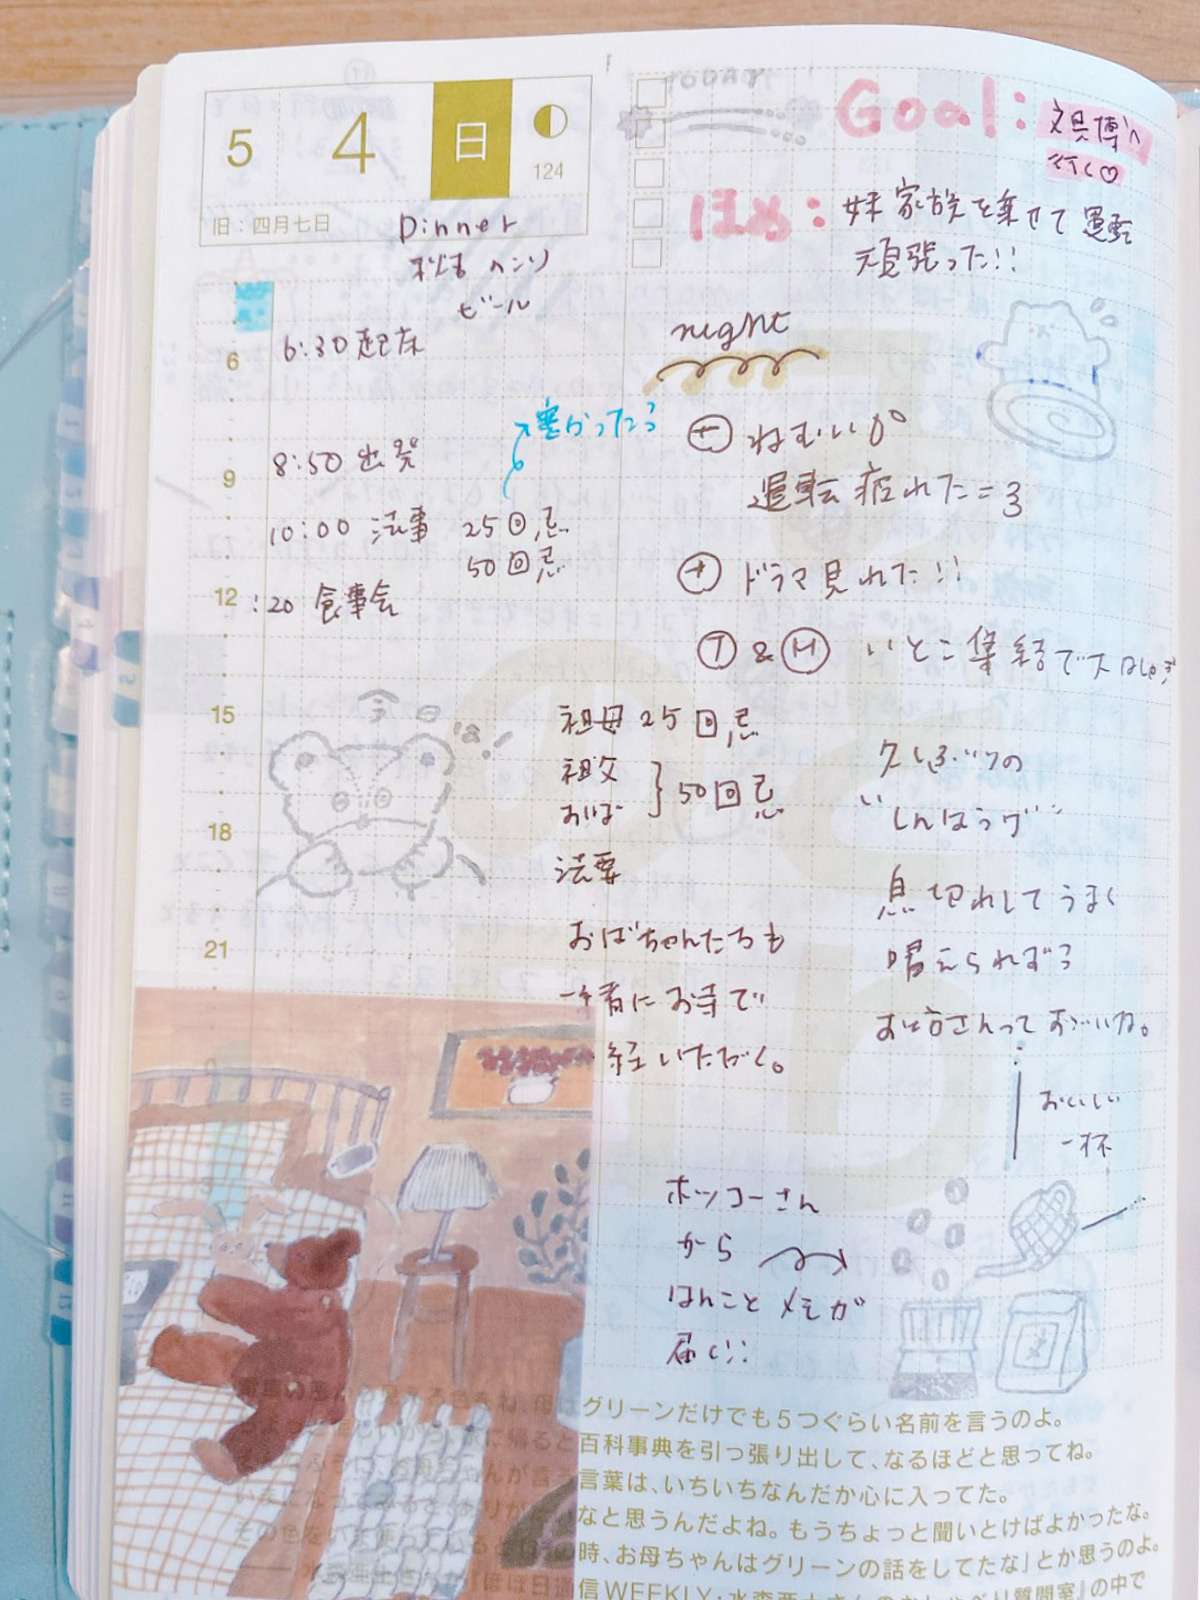 5 4 日
124
旧：四月七日
Dinner
ビール
TODAY
Goal: 文具博へ
行く♡
ほめ：妹家族を乗せて運転
頑張った!!
6
6:30 起床
night
寒かったろ
⊖ ねむいが
運転疲れた=3
8:50 出発
9
10:00 法事 25回忌
50回忌
⊕ ドラマ見れた!!
12
:20 食事会
Ⓣ & Ⓗ いとこ集結で
15
今日は!
祖母 25回忌
祖父
おば
50回忌
法要
18
おばちゃんたちも
一緒にお寺で
経いただく。
21
久しぶりの
息切れしてうまく
唱えられずろ
お坊さんってすごいね。
おいしい
一杯
ホッコーさん
から
はんことメモが
届く!!
グリーンだけでも5つぐらい名前を言うのよ。
百科事典を引っ張り出して、なるほどと思ってね。
言葉は、いちいちなんだか心に入ってた。
なと思うんだよね。もうちょっと聞いとけばよかったな。
時、お母ちゃんはグリーンの話をしてたな」とか思うのよ。
信WEEKLY・水森亜土さんのおしゃべり質問室』の中で